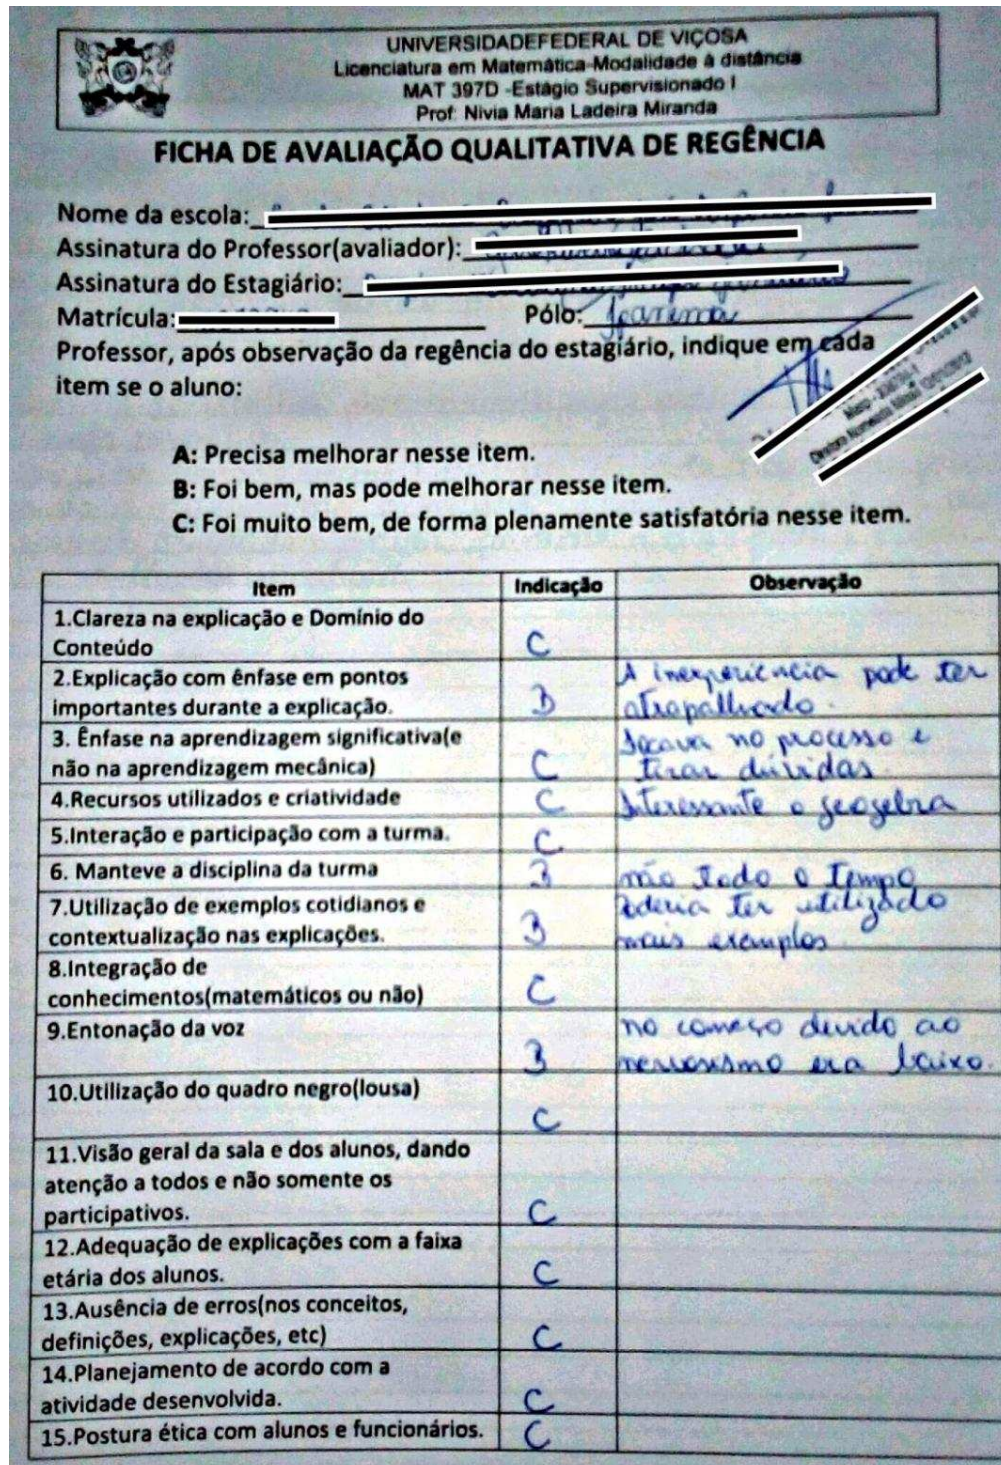 UNIVERSIDADEFEDERAL DE VIÇOSA
Licenciatura em Matemática-Modalidade à distância
MAT 397D -Estágio Supervisionado I
Prof: Nivia Maria Ladeira Miranda
FICHA DE AVALIAÇÃO QUALITATIVA DE REGÊNCIA
Nome da escola:
Assinatura do Professor(avaliador):
Assinatura do Estagiário:
Matrícula: Pólo:
Professor, após observação da regência do estagiário, indique em cada
item se o aluno:
A: Precisa melhorar nesse item.
B: Foi bem, mas pode melhorar nesse item.
C: Foi muito bem, de forma plenamente satisfatória nesse item.
Item Indicação Observação
1.Clareza na explicação e Domínio do
Conteúdo C
2.Explicação com ênfase em pontos A inexperiência pode ter
importantes durante a explicação. B atrapalhado.
3. Ênfase na aprendizagem significativa(e no processo e
não na aprendizagem mecânica) C tirar dúvidas.
4.Recursos utilizados e criatividade C Interessante o geogebra
5.Interação e participação com a turma. C
6. Manteve a disciplina da turma B não todo o tempo
7.Utilização de exemplos cotidianos e Poderia ter utilizado
contextualização nas explicações. B mais exemplos.
8.Integração de
conhecimentos(matemáticos ou não) C
9.Entonação da voz no começo devido ao
B nervosismo era baixo.
10.Utilização do quadro negro(lousa)
C
11.Visão geral da sala e dos alunos, dando
atenção a todos e não somente os
participativos. C
12.Adequação de explicações com a faixa
etária dos alunos. C
13.Ausência de erros(nos conceitos,
definições, explicações, etc) C
14.Planejamento de acordo com a
atividade desenvolvida. C
15.Postura ética com alunos e funcionários. C